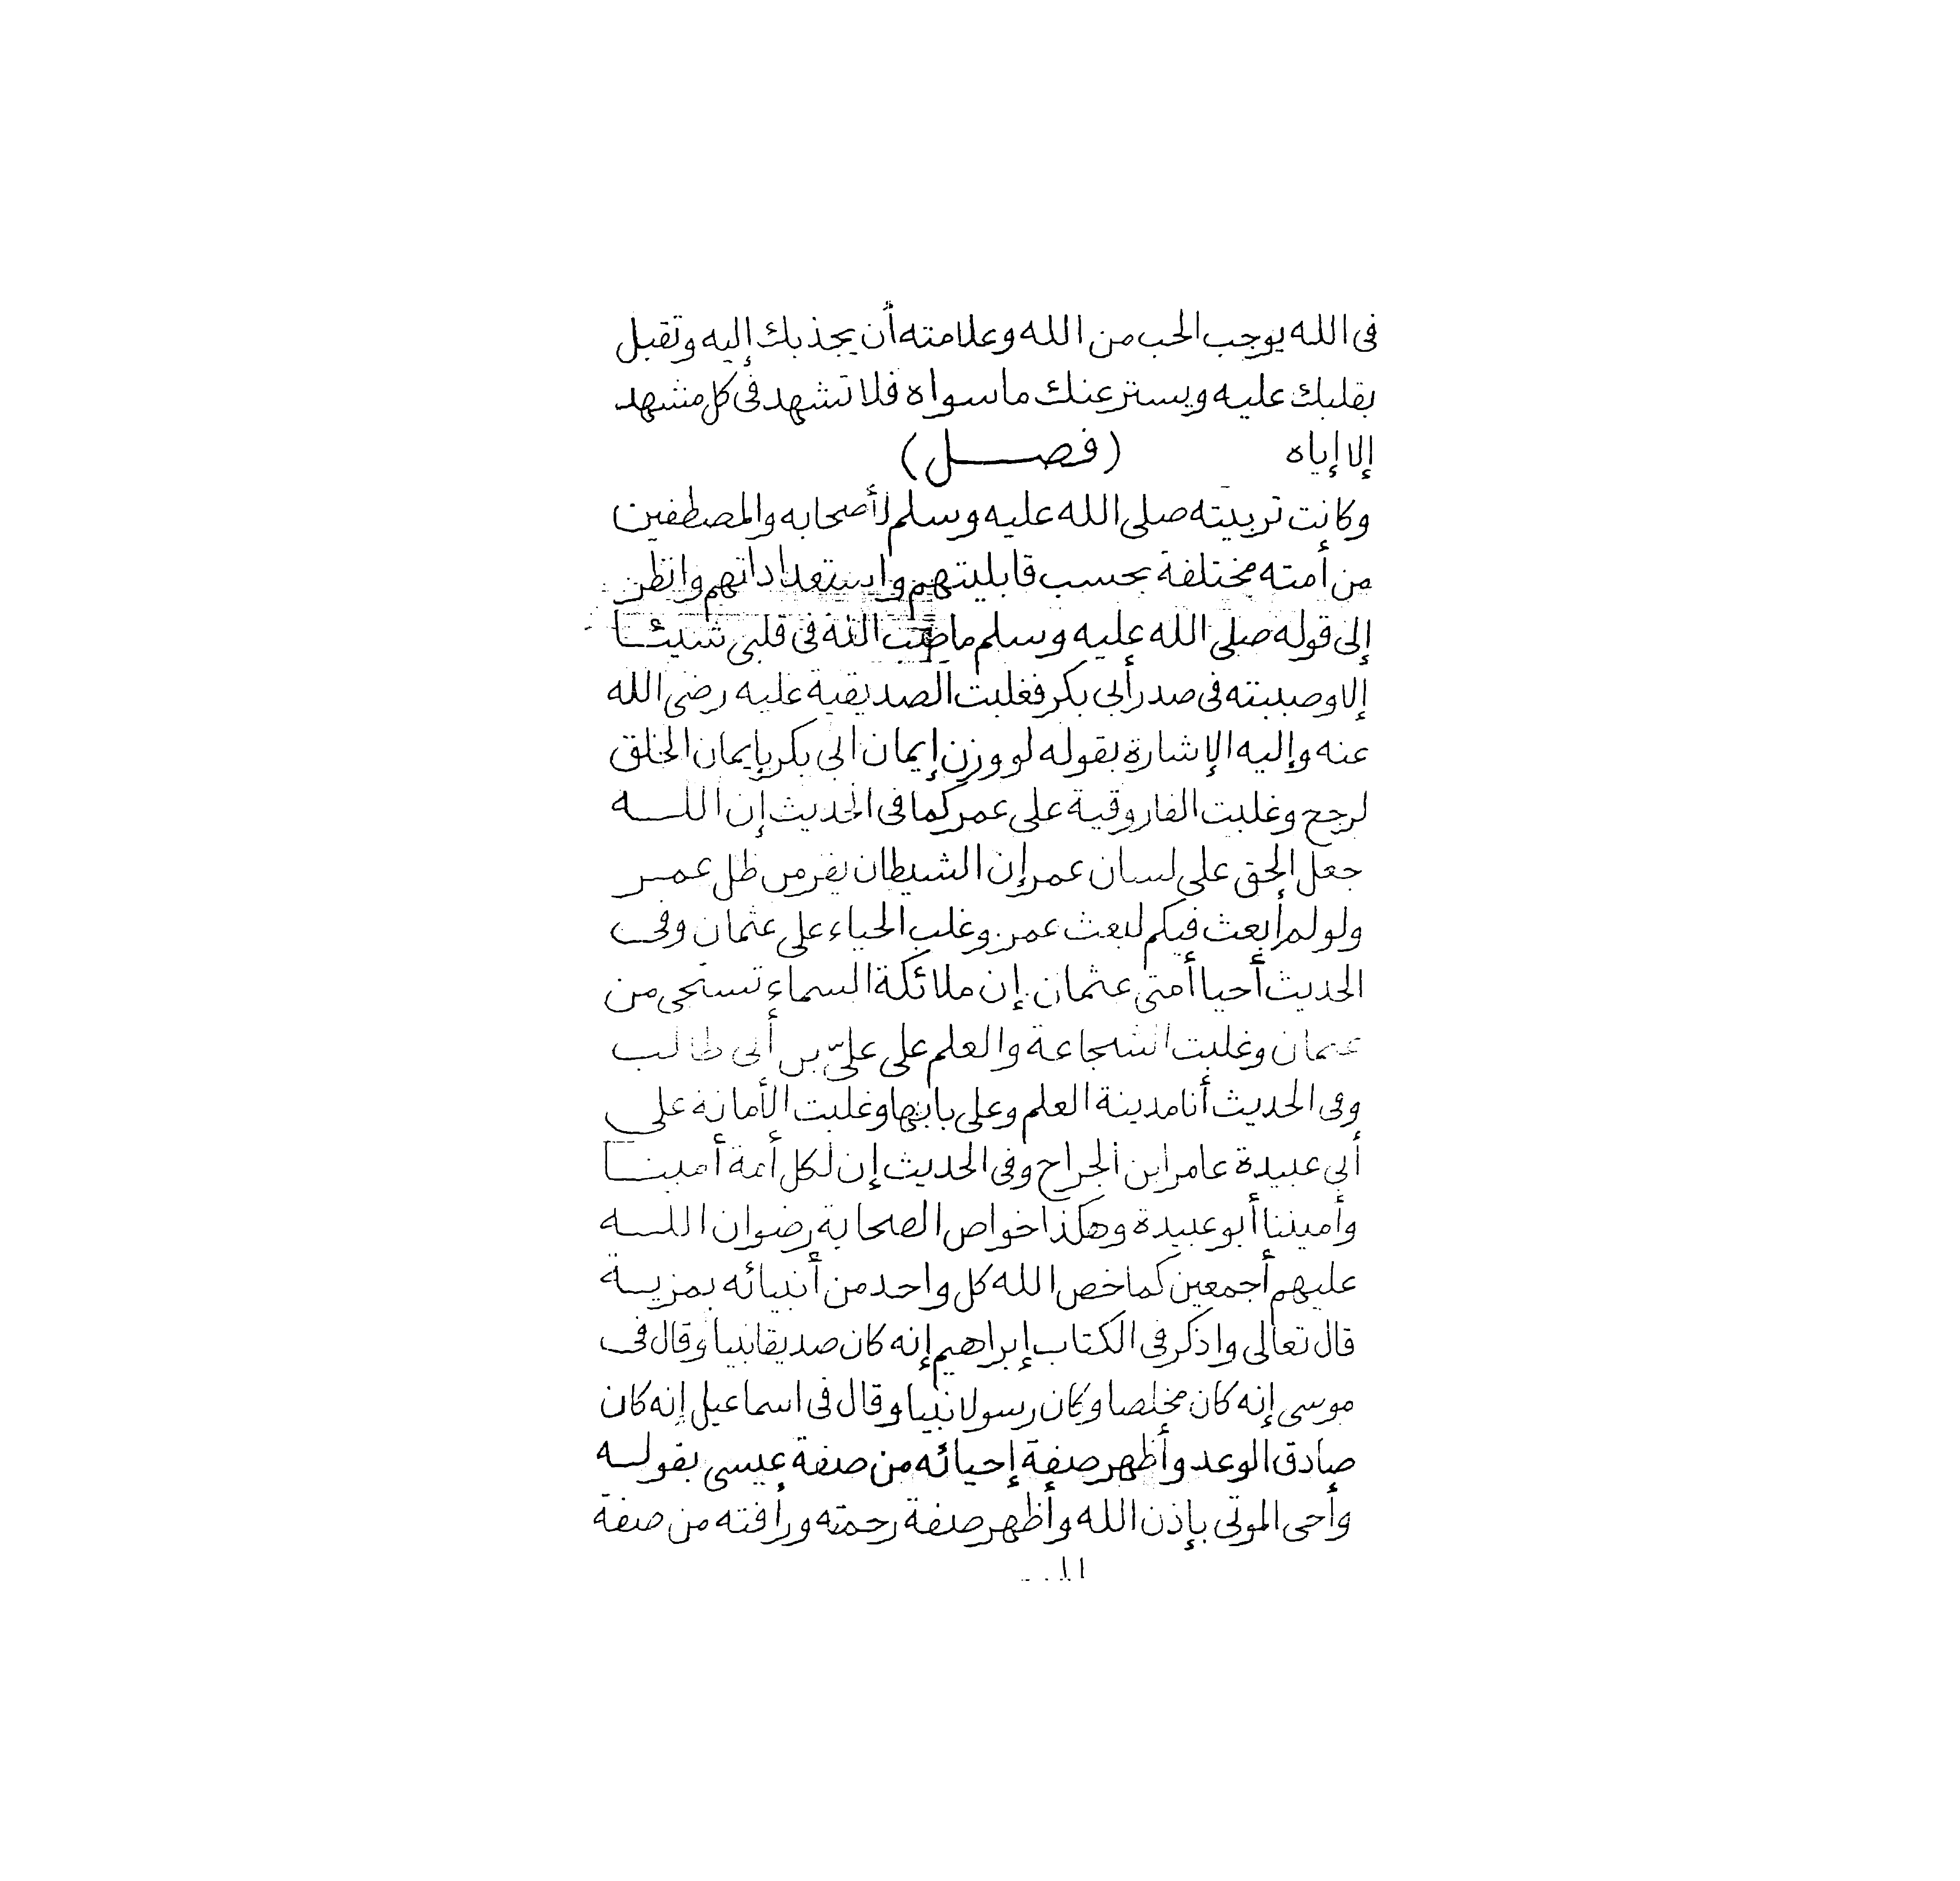 فى الله يوجب الحب من الله وعلامته أن يجذبك إليه وتقبل
بقلبك عليه ويستر عنك ماسواه فلا تشهد فى كل مشهد
إلا إياه (فصل)
وكانت تربيته صلى الله عليه وسلم لأصحابه والمصطفين
من أمته مختلفة بحسب قابليتهم واستعداداتهم وانظر
إلى قوله صلى الله عليه وسلم ماصب الله فى قلبى شيئا
إلا وصببته فى صدر أبى بكر فغلبت الصديقية عليه رضى الله
عنه وإليه الإشارة بقوله لو وزن إيمان ابى بكر بإيمان الخلق
لرجح وغلبت الفاروقية على عمر كما فى الحديث إن الله
جعل الحق على لسان عمر إن الشيطان يفر من ظل عمر
ولو لم أبعث فيكم لبعث عمر وغلب الحياء على عثمان وفى
الحديث أحيا أمتى عثمان إن ملائكة السماء تستحى من
عثمان وغلبت الشجاعة والعلم على علىّ بن أبى طالب
وفى الحديث أنا مدينة العلم وعلى بابها وغلبت الأمانة على
أبى عبيدة عامر ابن الجراح وفى الحديث إن لكل أمة أمينا
وأميننا أبو عبيدة وهكذا خواص الصحابة رضوان الله
عليهم أجمعين كما خص الله كل واحد من أنبيائه بمزية
قال تعالى واذكر فى الكتاب إبراهيم إنه كان صديقا نبيا وقال فى
موسى إنه كان مخلصا وكان رسولا نبيا وقال فى اسماعيل إنه كان
صادق الوعد وأظهر صفة إحيائه من صفة عيسى بقوله
وأحى الموتى بإذن الله وأظهر صفة رحمته ورأفته من صفة